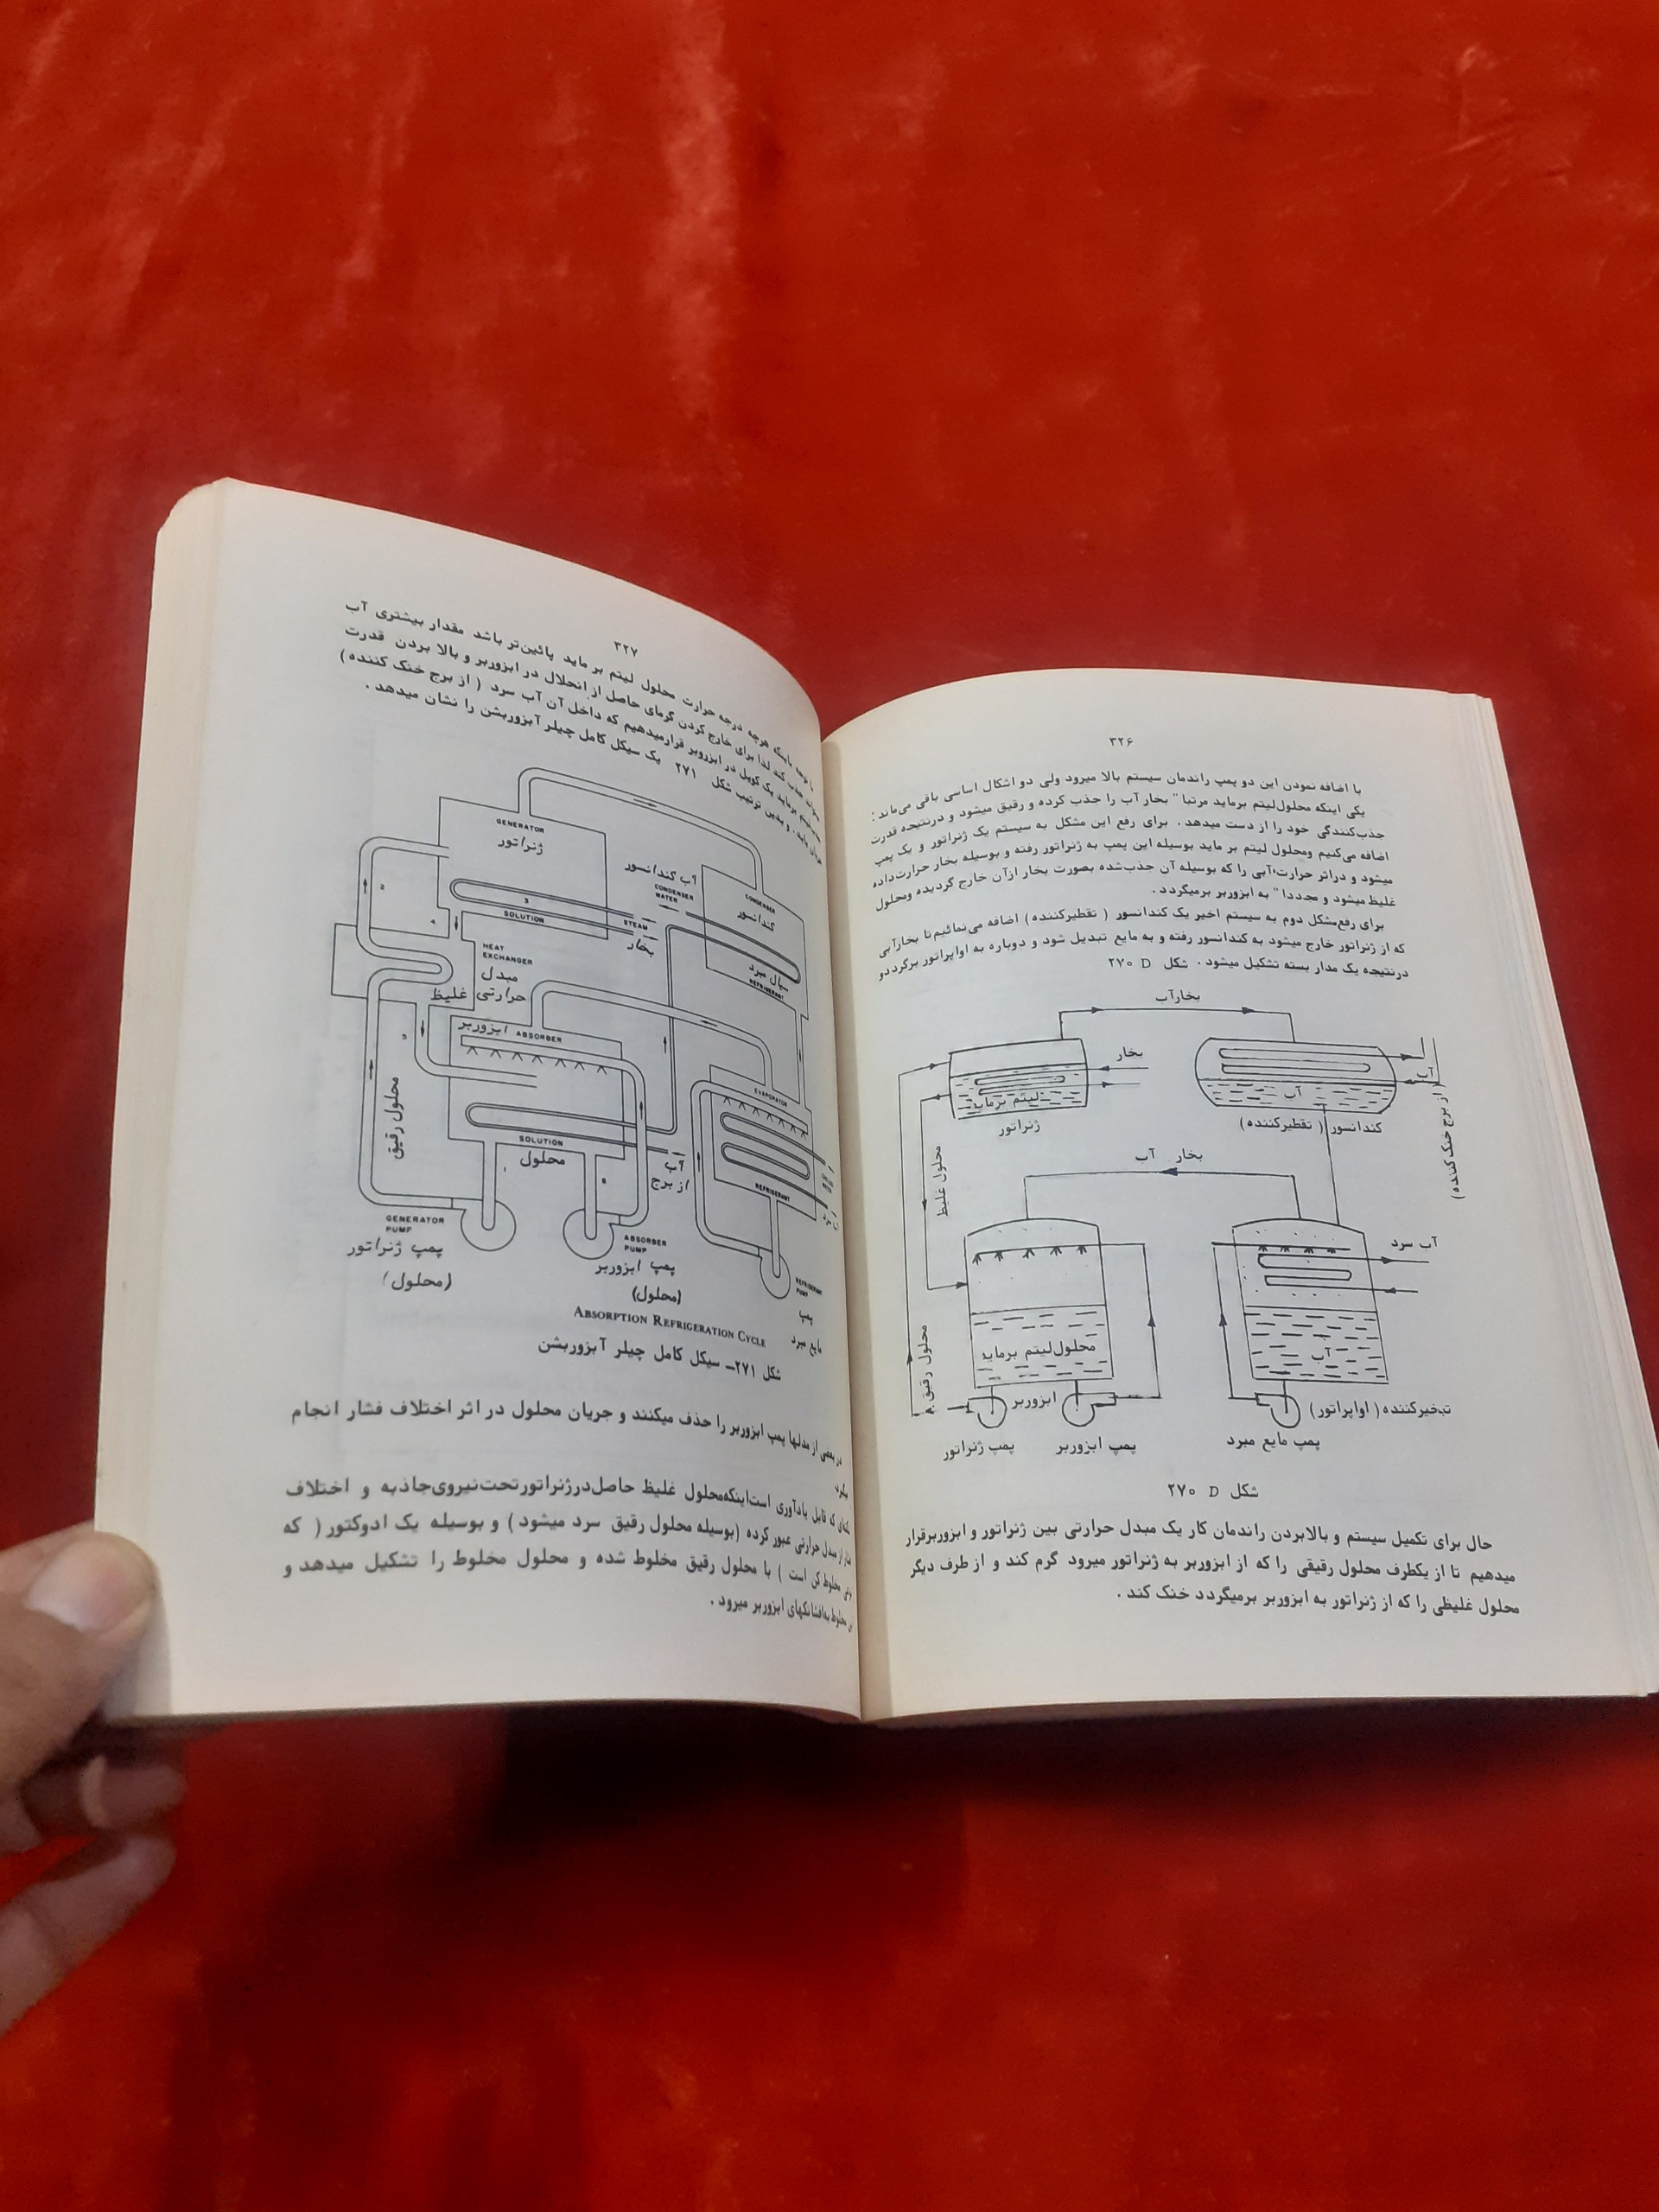 ۳۲۶
با اضافه نمودن این دو پمپ راندمان سیستم بالا میرود ولی دو اشکال اساسی باقی می‌ماند :
یکی اینکه محلول لیتم برماید مرتبا" بخار آب را جذب کرده و رقیق میشود و درنتیجه قدرت
جذب‌کنندگی خود را از دست میدهد . برای رفع این مشکل به سیستم یک ژنراتور و یک پمپ
اضافه می‌کنیم ومحلول لیتم بر ماید بوسیله این پمپ به ژنراتور رفته و بوسیله بخار حرارت‌داده
میشود و دراثر حرارت،آبی را که بوسیله آن جذب‌شده بصورت بخار ازآن خارج گردیده ومحلول
غلیظ میشود و مجددا" به ابزوربر برمیگردد .
برای رفع‌مشکل دوم به سیستم اخیر یک کندانسور ( تقطیرکننده) اضافه می‌نمائیم‌تا بخارآبی
که از ژنراتور خارج میشود به کندانسور رفته و به مایع تبدیل شود و دوباره به اواپراتور برگردد‌و
درنتیجه یک مدار بسته تشکیل میشود . شکل ۲۷۰ D
بخارآب
بخار
آب
لیتم برماید
آب
ژنراتور
کندانسور ( تقطیرکننده)
( از برج خنک‌کننده)
محلول غلیظ
بخار آب
آب سرد
محلول رقیق
محلول‌لیتم برماید
آب
ابزوربر
تبخیرکننده ( اواپراتور)
پمپ ژنراتور
پمپ ابزوربر
پمپ مایع مبرد
شکل ۲۷۰ D
حال برای تکمیل سیستم و بالابردن راندمان کار یک مبدل حرارتی بین ژنراتور و ابزوربرقرار
میدهیم تا از یکطرف محلول رقیقی را که از ابزوربر به ژنراتور میرود گرم کند و از طرف دیگر
محلول غلیظی را که از ژنراتور به ابزوربر برمیگردد خنک کند .
۳۲۷
باینکه هرچه درجه حرارت محلول لیتم بر ماید پائین‌تر باشد مقدار بیشتری آب
جذب کند لذا برای خارج کردن گرمای حاصل از انحلال در ابزوربر و بالا بردن قدرت
برماید یک کویل در ابزوربر قرارمیدهیم که داخل آن آب سرد ( از برج خنک کننده)
و بدین ترتیب شکل ۲۷۱ یک سیکل کامل چیلر آبزوربشن را نشان میدهد .
GENERATOR
ژنراتور
آب کندانسور
CONDENSER
WATER
CONDENSER
کندانسور
2
3
4
SOLUTION
STEAM
بخار
سیال مبرد
REFRIGERANT
HEAT
EXCHANGER
مبدل
حرارتی غلیظ
ابزوربر ABSORBER
5
محلول رقیق
EVAPORATOR
SOLUTION
محلول
آب
از برج
REFRIGERANT
1
6
GENERATOR
PUMP
پمپ ژنراتور
(محلول)
ABSORBER
PUMP
پمپ ابزوربر
(محلول)
REFRIGERANT
PUMP
پمپ
مایع مبرد
ABSORPTION REFRIGERATION CYCLE
شکل ۲۷۱– سیکل کامل چیلر آبزوربشن
در بعضی از مدلها پمپ ابزوربر را حذف میکنند و جریان محلول در اثر اختلاف فشار انجام
که قابل یادآوری است‌اینکه‌محلول غلیظ حاصل‌درژنراتورتحت‌نیروی‌جاذبه و اختلاف
از مبدل حرارتی عبور کرده (بوسیله محلول رقیق سرد میشود) و بوسیله یک ادوکتور ( که
مخلوط کن است ) با محلول رقیق مخلوط شده و محلول مخلوط را تشکیل میدهد و
مخلوط به‌افشانکهای ابزوربر میرود .